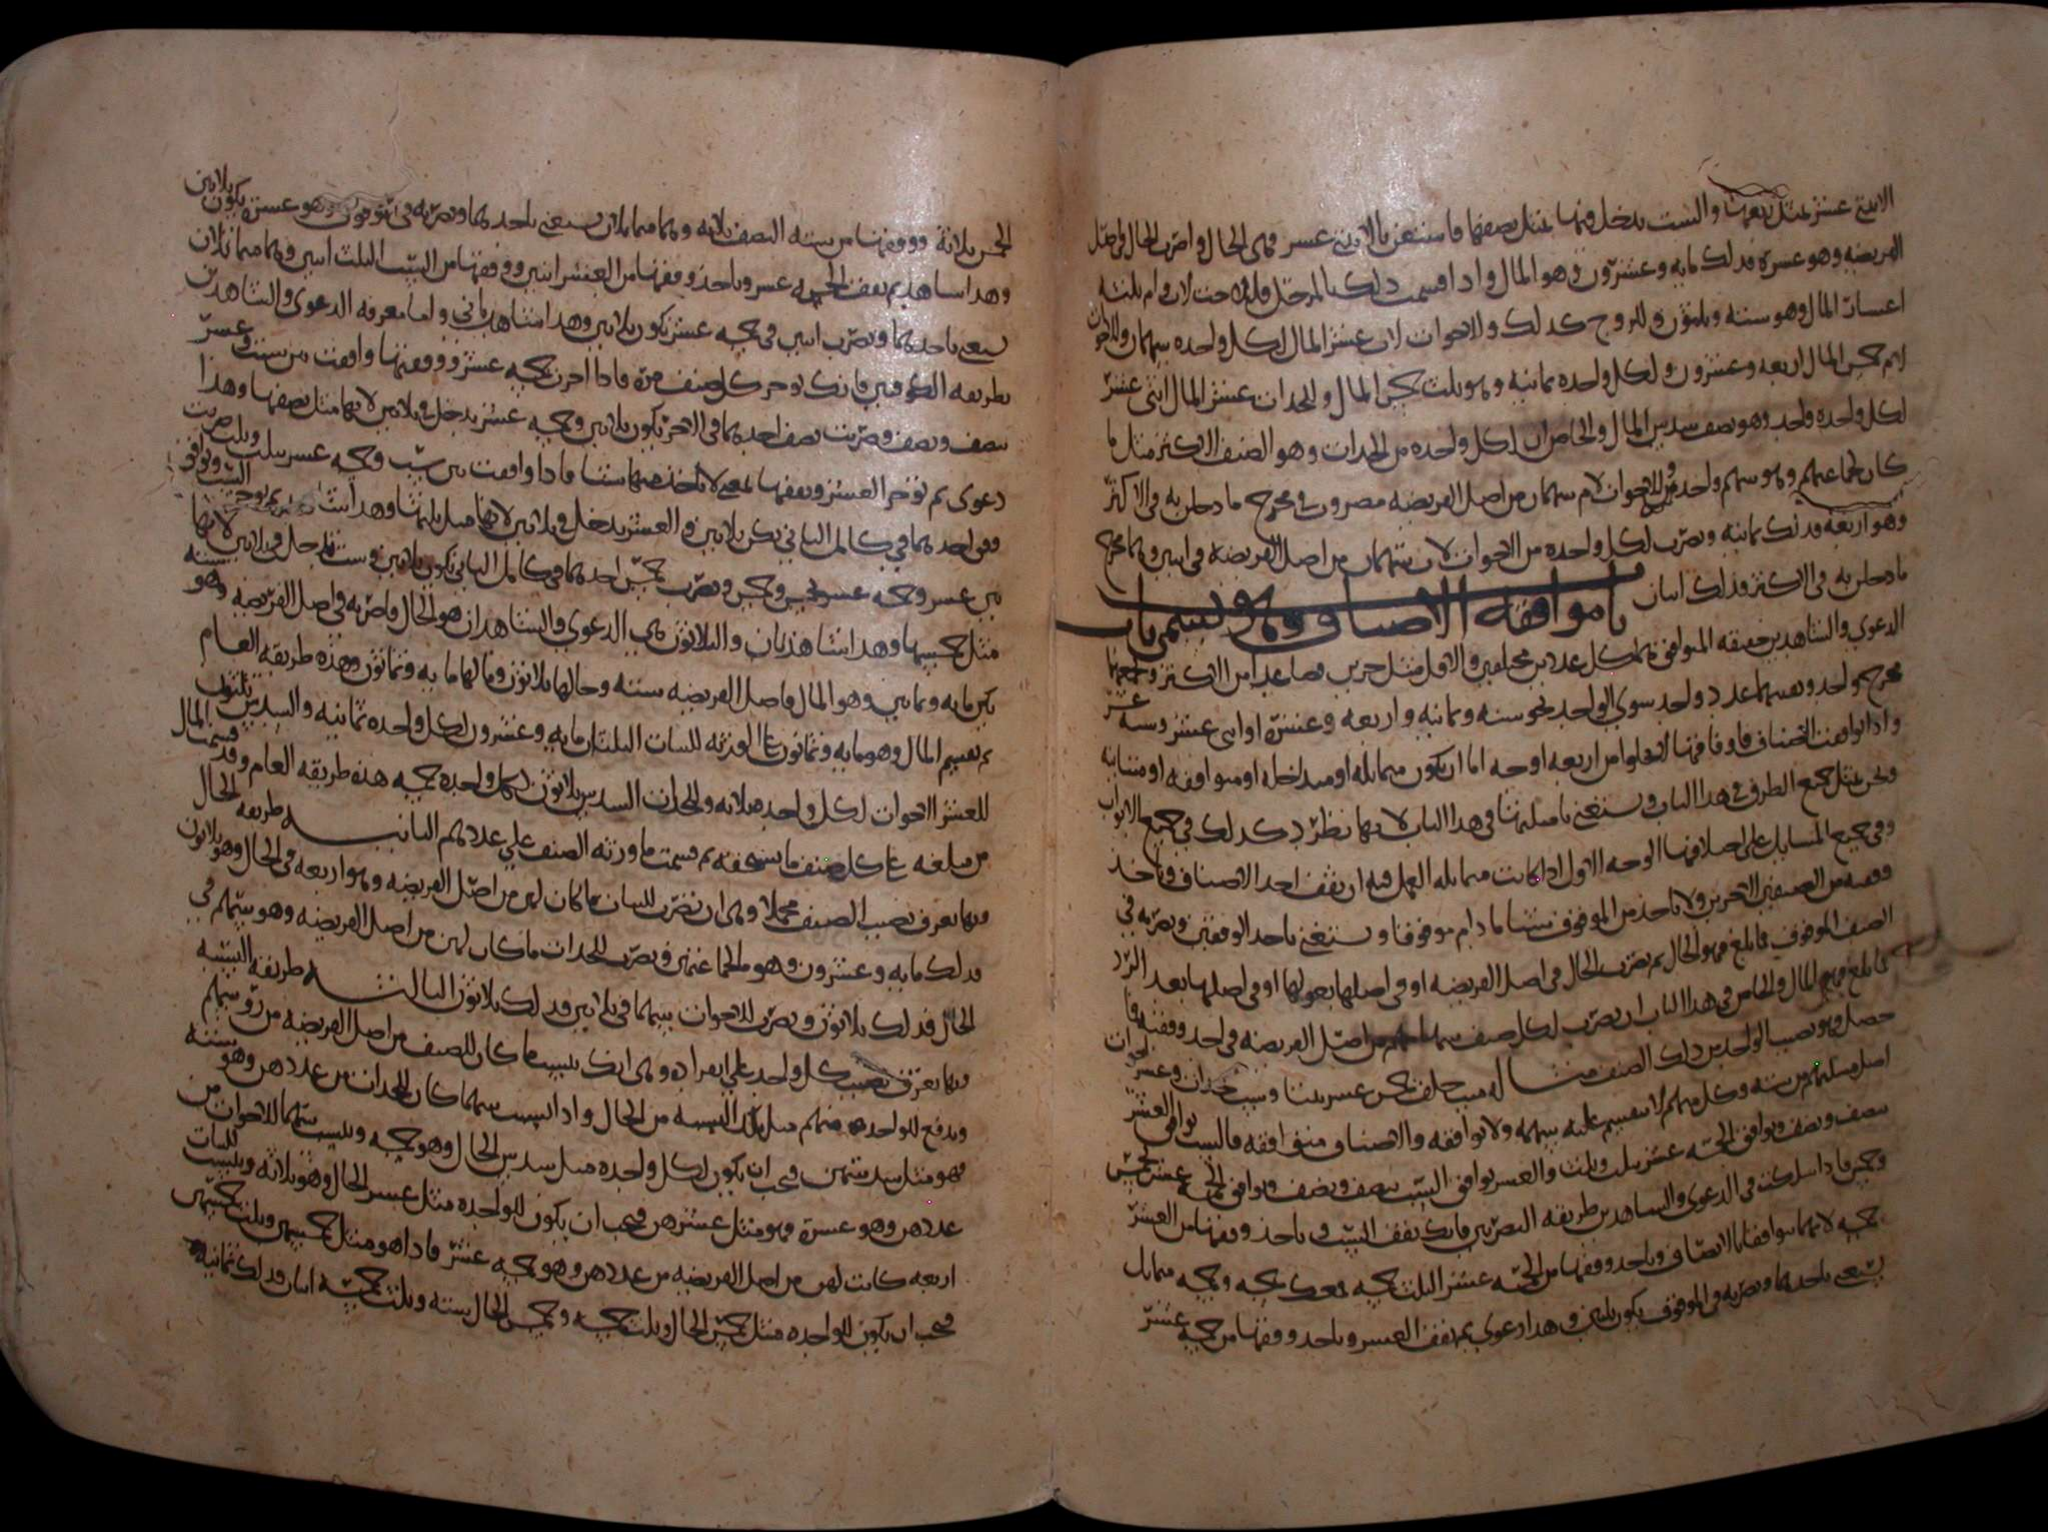 الاثني عشر مثل نصفها والست يدخل فيها مثل نصفها فاستغن بالاثني عشر فهي الحال واضرب الحال في اصل
الفريضه وهو عشرة فذلك مايه وعشرون وهو المال واذا قسمت ذلك
اعشار المال وهو سته وثلثون وللزوج كذلك وللاخوات لاب عشر المال لكل واحده سهمان وللاخوات
لام خمس المال اربعه وعشرون لكل واحده ثمانيه وهو ثلث خمس المال وللجدات عشر المال اثنى عشر
لكل واحده واحد وهو نصف سدس المال والخاص ان لكل واحده من الجدات وهو الصنف الاكثر مثل ما
كان لجماعتهم وهو سهم واحد وللاخوات لام سهمان من اصل الفريضه مضروب في مخرج ما دخلن به في الاكثر
وهو اربعه فذلك ثمانيه وتضرب لكل واحده من الاخوات لاب سهمان من اصل الفريضه في اثنين وهما مخرج
ما دخلن به في الاكثر فذلك اربعه
باب موافقه الاصناف وهو يسمى باب
الدعوى والشاهدين حقيقه المتوافق هما كل عددين مختلفين والاقل مثل جزين فصاعدا من الاكثر
مخرجهما واحد ويقسمهما عدد واحد سوى الواحد نحو سته وثمانيه واربعه وعشرة او اثنى عشر وسته عشر
واذا توافقت الاصناف فاوفاقها لا تخلوا من اربعه اوجه اما ان يكون متماثله او متداخله او متوافقه او متباينه
ونحن نمثل جميع الطرق في هذا الباب ونستغني بامثلتها في هذا الباب لانها تطرد كذلك في جميع الابواب
وفي جميع المسايل على اختلافها الوجه الاول اذا كانت متماثله العمل فيه ان تقف احد الاصناف وتاخذ
وفقه من الصنفين الاخرين ولا تاخذ من الموقوف شيئا ما دام موقوفا وتستغني باحد الوفقين وتضربه في
الصنف الموقوف فما بلغ فهو الحال ثم تضرب الحال في اصل الفريضه او في اصلها بعولها او في اصلها بعد الرد
فما بلغ فهو المال والخاص في هذا الباب ان تضرب لكل صنف سهامهم من اصل الفريضه في احد وفقيه فما
حصل فهو نصيب الواحد من ذلك الصنف مثاله ميت خلف خمس عشر بنتا وست جدات وعشر اخوات
اصل مسلتهم من سته وكل منهم لا تنقسم عليه سهمه ولا توافقه والاصناف متوافقه فالست توافق العشر
بنصف ونصف وتوافق الخمسه عشر بثلث وثلث والعشر توافق الست بنصف ونصف وتوافق الخمسه عشر بخمس
وخمس فاذا سلكت في الدعوى والشاهدين طريقه البصريين فانك تقف الست وتاخذ وفقها من العشر
خمسه لانهما توافقا بالانصاف وتاخذ وفقها من الخمسه عشر الثلث خمسه فمعك خمسه وخمسه متماثل
يستغنى باحدهما وتضربه في الموقوف يكون ثلثين وهذا دعوى ثم تقف العشر وتاخذ وفقها من خمسه عشر
الخمس ثلاثة ووفقها من سته النصف ثلاثه وهما متماثلان تستغني باحدهما وتضربه في الموقوف وهو عشره يكون ثلاثين
وهذا شاهد ثم تقف الخمسه عشر وتاخذ وفقها من العشر اثنين ووفقها من الست الثلث اثنين وهما متماثلان
تستغني باحدهما وتضرب اثنين في خمسه عشر تكون ثلاثين وهذا شاهد ثاني واما معرفه الدعوى والشاهدين
بطريقه الكوفيين فانك توخر كل صنف مرة فاذا اخرت خمسه عشر ووفقتها وافقت بين ست وعشر
بنصف ونصف وضربت نصف احدهما في الاخر يكون ثلاثين وخمسه عشر يدخل في ثلاثين لانها مثل نصفها وهذا
دعوى ثم توخر العشر وتقفها بمعنى لا تاخذ منها شيئا فاذا وافقت بين ست وخمسه عشر بثلث وثلث ضربت
وفق احدهما في كامل الثاني تكن ثلاثين والعشر يدخل في ثلاثين لانها مثل ثلثها وهذا شاهد ثم توخر الست وتوافق
بين عشر وخمسه عشر بخمس وخمس وتضرب خمس احدهما في كامل الثاني تكون ثلاثين وست تدخل في ثلاثين لانها
مثل خمسها وهذا شاهد ثان والثلاثون هي الدعوى والشاهدان هو الحال فاضربه في اصل الفريضه وهو سته
يكن مايه وثمانين وهو المال فاصل الفريضه سته وحالها ثلاثون ومالها مايه وثمانون وهذه طريقه العام
ثم تقسم المال وهو مايه وثمانون على الورثه للبنات الثلثان مايه وعشرون لكل واحده ثمانيه والسدس ثلثون
للعشر الاخوات لكل واحده ثلاثه وللجدات السدس ثلاثون لكل واحده خمسه هذه طريقه العام وقد قسمت المال
من مبلغه على كل صنف ما يستحقه ثم قسمت ما ورثه الصنف على عددهم الثانيه طريقه الحال
وبها تعرف نصيب الصنف مجملا وهي ان تضرب للبنات ما كان لهن من اصل الفريضه وهو اربعه في الحال وهو ثلاثون
فذلك مايه وعشرون وهو لجماعتهن وتضرب للجدات ما كان لهن من اصل الفريضه وهو سهم في
الحال فذلك ثلاثون وتضرب للاخوات سهما في ثلاثين فذلك ثلاثون الثالثه طريقه النسبه
وبها تعرف نصيب كل واحد على انفراده وهي انك تنسب ما كان للصنف من اصل الفريضه من رؤسهم
وتدفع للواحد منهم مثل تلك النسبه من الحال واذا نسبت سهما كان للجدات من عددهن وهو سته
فهو مثل سدسهن فيجب ان يكون لكل واحده مثل سدس الحال وهو خمسه وتنسب سهما للاخوات من
عددهن وهو عشرة فهو مثل عشرهن فيجب ان يكون للواحده مثل عشر الحال وهو ثلاثه وتنسب للبنات
اربعه كانت لهن من اصل الفريضه من عددهن وهو خمسه عشر فاذا هو مثل خمسهن وثلث خمسهن
فيجب ان يكون للواحده مثل خمس الحال وثلث خمسه وخمس الحال سته وثلث خمسه اثنان فذلك ثمانيه